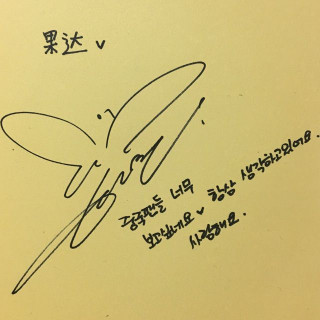 果达
중국팬들 너무
보고싶네요 항상 생각하고있어요
사랑해요.